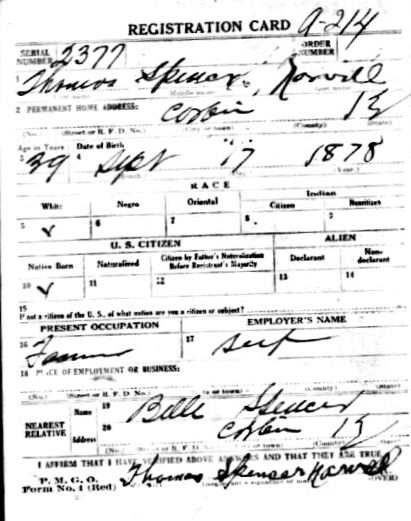 REGISTRATION CARD A-214
SERIAL NUMBER 2377 ORDER NUMBER
1 Thomas Spencer Norvell
2 PERMANENT HOME ADDRESS: Corbin Ky
(No.) (Street or R. F. D. No.) (City or town) (County) (State)
Age in Years Date of Birth
3 39 4 Sept 17 1878
(Year.)
RACE
White Negro Oriental Indian
Citizen Noncitizen
5 ✓ 6 7 8 9
U. S. CITIZEN ALIEN
Native Born Naturalized Citizen by Father's Naturalization Before Registrant's Majority Declarant Non-declarant
10 ✓ 11 12 13 14
15
If not a citizen of the U. S., of what nation are you a citizen or subject?
PRESENT OCCUPATION EMPLOYER'S NAME
16 Farmer 17 self
18 PLACE OF EMPLOYMENT OR BUSINESS:
(No.) (Street or R. F. D. No.) (City or town) (County) (State)
NEAREST RELATIVE Name 19 Belle Spencer
Address 20 Corbin Ky
(No.) (Street or R. F. D. No.) (City or town) (County) (State)
I AFFIRM THAT I HAVE VERIFIED ABOVE ANSWERS AND THAT THEY ARE TRUE
P. M. G. O.
Form No. 1 (Red) Thomas Spencer Norvell